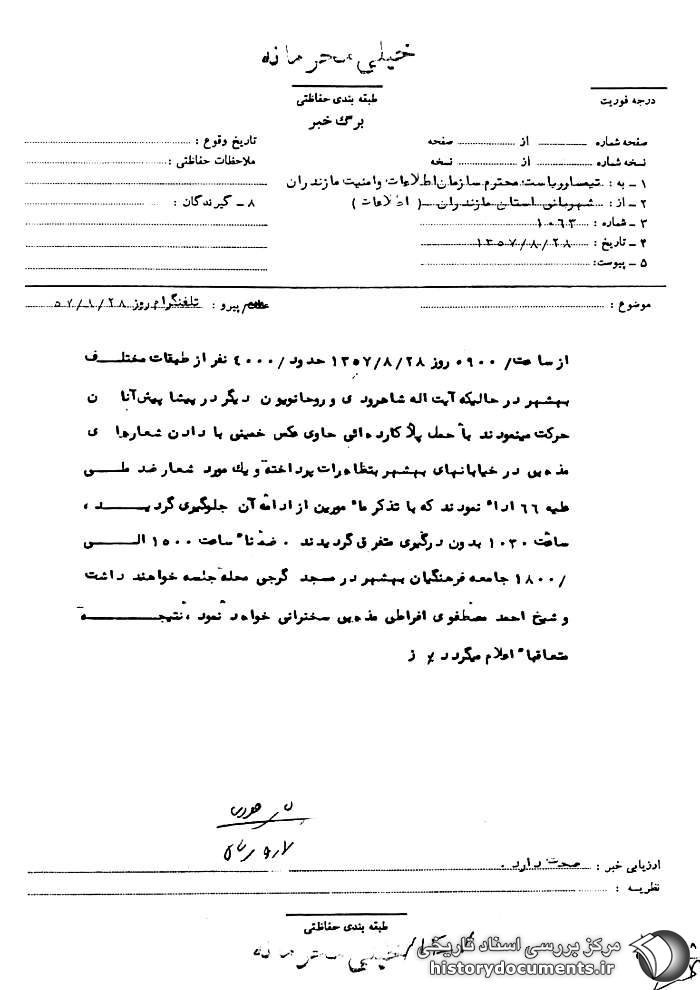 خیلی محرمانه
طبقه بندی حفاظتی
درجه فوریت
برگ خبر
صفحه شماره از صفحه
تاریخ وقوع :
نسخه شماره از نسخه
ملاحظات حفاظتی :
۱ ـ به : تیمسار ریاست محترم سازمان اطلاعات وامنیت مازندران
۲ ـ از : شهربانی استان مازندران ( اطلاعات )
۸ ـ گیرندگان :
۳ ـ شماره : ۱۰۶۳
۴ ـ تاریخ : ۱۳۵۷/۸/۲۸
۵ ـ پیوست:
موضوع :
پیرو : تلفنگرام روز ۵۷/۸/۲۸
از ساعت/ ۰۹۰۰ روز ۱۳۵۷/۸/۲۸ حدود /۴۰۰۰ نفر از طبقات مختلف
بهشهر در حالیکه آیت اله شاهرودی و روحانیون دیگر در پیشاپیش آنان
حرکت مینمودند با حمل پلاکاردهائی حاوی عکس خمینی با دادن شعارهای
مذهبی در خیابانهای بهشهر بتظاهرات پرداخته ویک مورد شعار ضد ملی
علیه ۶۶ ادا نمودند که با تذکر مامورین از ادامه آن جلوگیری گردید ،
ساعت ۱۰۳۰ بدون درگیری متفرق گردیدند . ضمنا ساعت ۱۵۰۰ الی
/۱۸۰۰ جامعه فرهنگیان بهشهر در مسجد گرجی محله جلسه خواهند داشت
و شیخ احمد مصطفوی افراطی مذهبی سخنرانی خواهد نمود ، نتیجه
متعاقبا اعلام میگردد٪ ز
ارزیابی خبر : صحت دارد .
نظریه :
طبقه بندی حفاظتی
خیلی محرمانه
مرکز بررسی اسناد تاریخی
historydocuments.ir